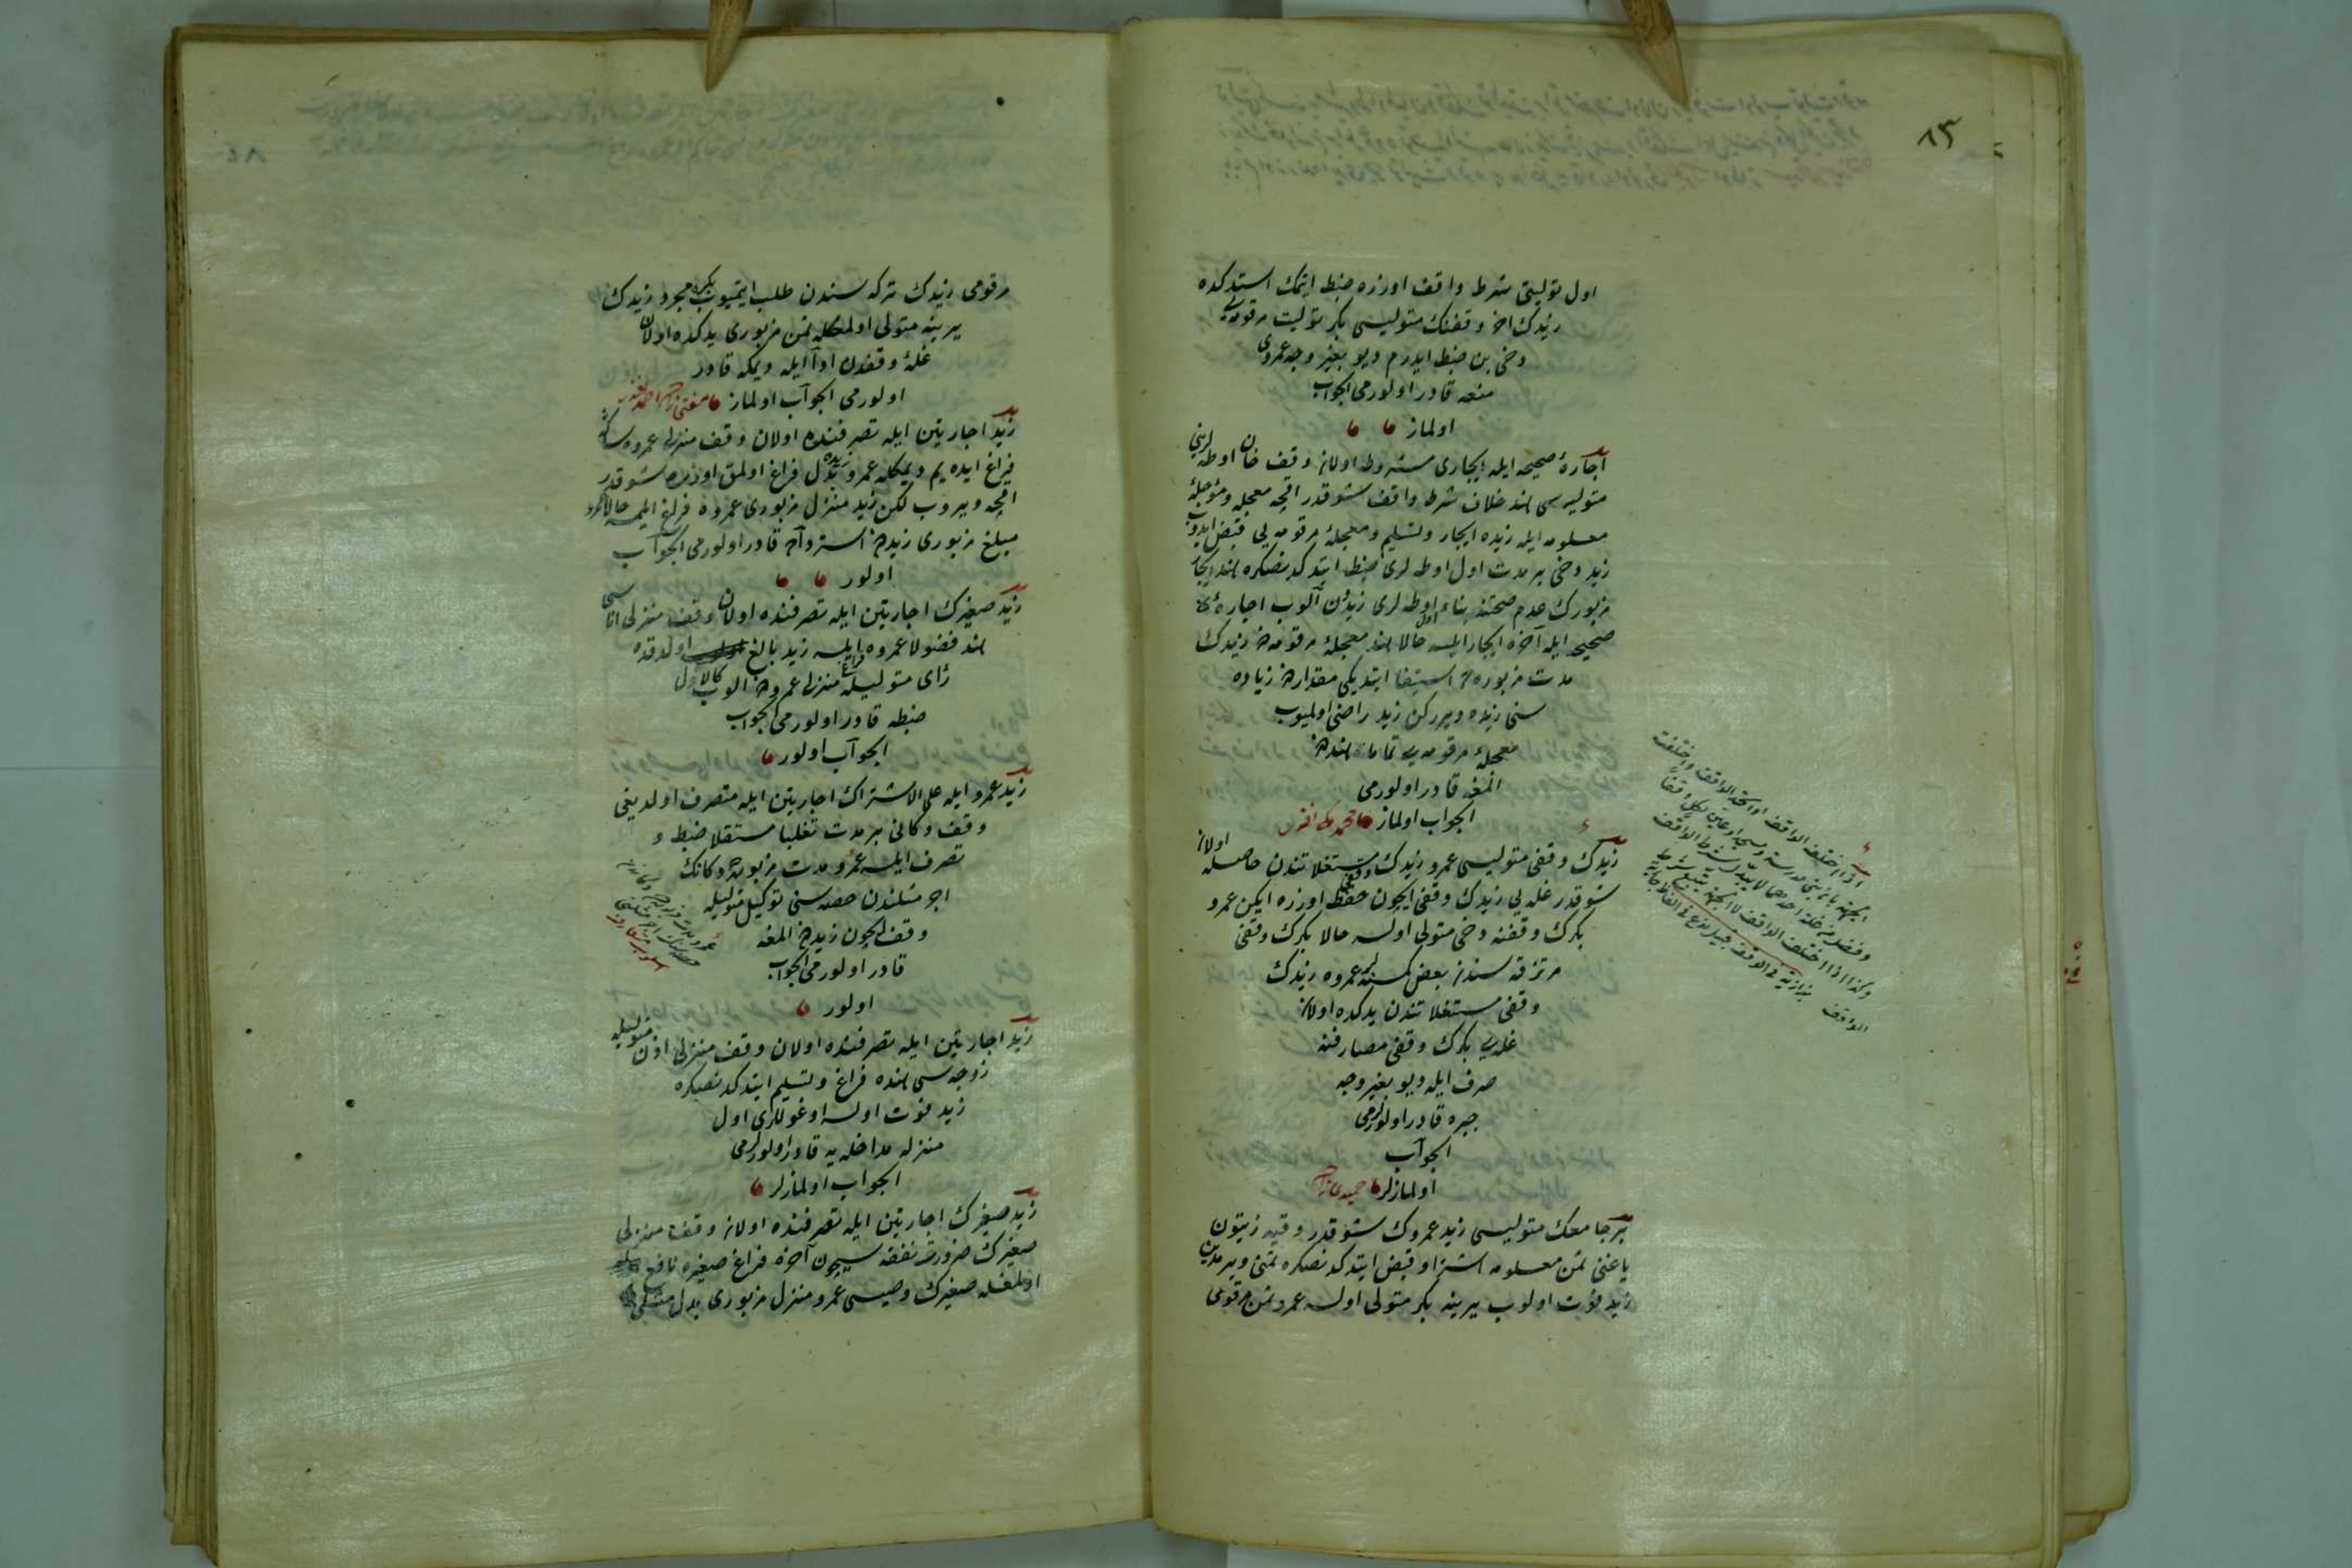 ٨٣
اول توليتی شرط واقف اوزره ضبط ایتمك استدكده
زیدك اخر وقفنك متولیسی بكر تولیت مرقومه‌یی
دخی بن ضبط ایدرم دیو بغیر وجه عمروی
منعه قادر اولورمی الجواب
اولماز
اجارهٔ صحیحه ایله ایجاری مشروط اولان وقف خان اوطه‌لرینی
متولیسی هند خلاف شرط واقف شو قدر اقچه معجله و مؤجلهٔ
معلومه ایله زیده ایجار و تسلیم و معجلهٔ مرقومه‌یی قبض ایدوب
زید دخی بر مدت اول اوطه‌لری ضبط ایتدكدنصكره هند ایجار
مزبورك عدم صحتنه بناء اول اوطه‌لری زیددن آلوب اجارهٔ
صحیحه ایله آخره ایجار ایلسه حالا هند معجلهٔ مرقومه‌دن زیدك
مدت مزبوره‌ده استیفا ایتدیكی مقداردن زیاده
سنی زیده ویرركن زید راضی اولمیوب
معجلهٔ مرقومه‌یی تماما هنددن
المغه قادر اولورمی
الجواب اولماز
زیدك وقفی متولیسی عمرو زیدك وقفی مستغلاتندن حاصله اولان
شو قدر غله‌یی زیدك وقفی ایچون حفظ اوزره ایكن عمرو
بكرك وقفنه دخی متولی اولسه حالا بكرك وقفی
مرتزقه‌سندن بعض كسنه‌لر عمروه زیدك
وقفی مستغلاتندن یدكده اولان
غله‌یی بكرك وقفی مصارفنه
صرف ایله دیو بغیر وجه
جبره قادر اولورلرمی
الجواب
اولمازلر
بر جامعك متولیسی زید عمروك شو قدر وقیه زیتون
یاغنی ثمن معلومه اشترا و قبض ایتدكدنصكره ثمنی ویرمدین
زید فوت اولوب یرینه بكر متولی اولسه عمرو ثمن مرقومی
اذا اختلف الواقف او اتحد الواقف واختلفت
الجهة بان بنى مدرسة ومسجدا وعين لكل وقفا
وفضل من غلة احدهما لا يبدل شرط الواقف
وكذا اذا اختلف الواقف لا الجهة يتبع شرط
الواقف بزازية فى الوقف
مرقومی زیدك تركه‌سندن طلب ایتمیوب بكره مجرد زیدك
یرینه متولی اولمغله ثمن مزبوری یدكده اولان
غلهٔ وقفدن ادا ایله دیمكه قادر
اولورمی الجواب اولماز
زید اجارتین ایله تصرفنده اولان وقف منزلی عمروه سكا
فراغ ایده‌یم دیمكله عمرو زیده بدل فراغ اولمق اوزره شو قدر
اقچه ویروب لكن زید منزل مزبوری عمروه فراغ ایلمسه حالا عمرو
مبلغ مزبوری زیددن استرداده قادر اولورمی الجواب
اولور
زید صغیرك اجارتین ایله تصرفنده اولان وقف منزلی اناسی
هند فضولا عمروه فراغ ایلسه زید بالغ اولدقده
رأی متولیله منزلی عمرودن الوب كالاول
ضبطه قادر اولورمی الجواب
الجواب اولور
زید عمرو ایله على الاشتراك اجارتین ایله متصرف اولدیغی
وقف دكانی بر مدت تغلبا مستقلا ضبط و
تصرف ایلسه عمرو مدت مزبوره‌ده دكانك
اجر مثلندن حصه‌سنی توكیل متولیله
وقف ایچون زیددن المغه
قادر اولورمی الجواب
اولور
زید اجارتین ایله تصرفنده اولان وقف منزلی اذن متولیله
زوجه‌سی هنده فراغ و تسلیم ایتدكدنصكره
زید فوت اولسه اوغوللری اول
منزله مداخله‌یه قادر اولورلرمی
الجواب اولمازلر
زید صغیرك اجارتین ایله تصرفنده اولان وقف منزلی
صغیرك ضرورت نفقه‌سیچون آخره فراغ صغیره نافع
اولمغله صغیرك وصیسی عمرو منزل مزبوری بدل مثلی